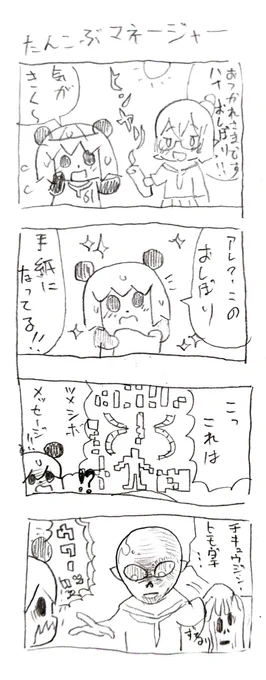 たんこぶマネージャー
おつかれさまです
ハイ おしぼり!!
ヒンヤリ
気が
きく〜
アレアーこの
おしぼり
手紙に
なってる!!
こっ
これは
ツメシボ
メッセージ!!
!?
チキュウジン…
トモダチ
…
ザワーッ
ずるり